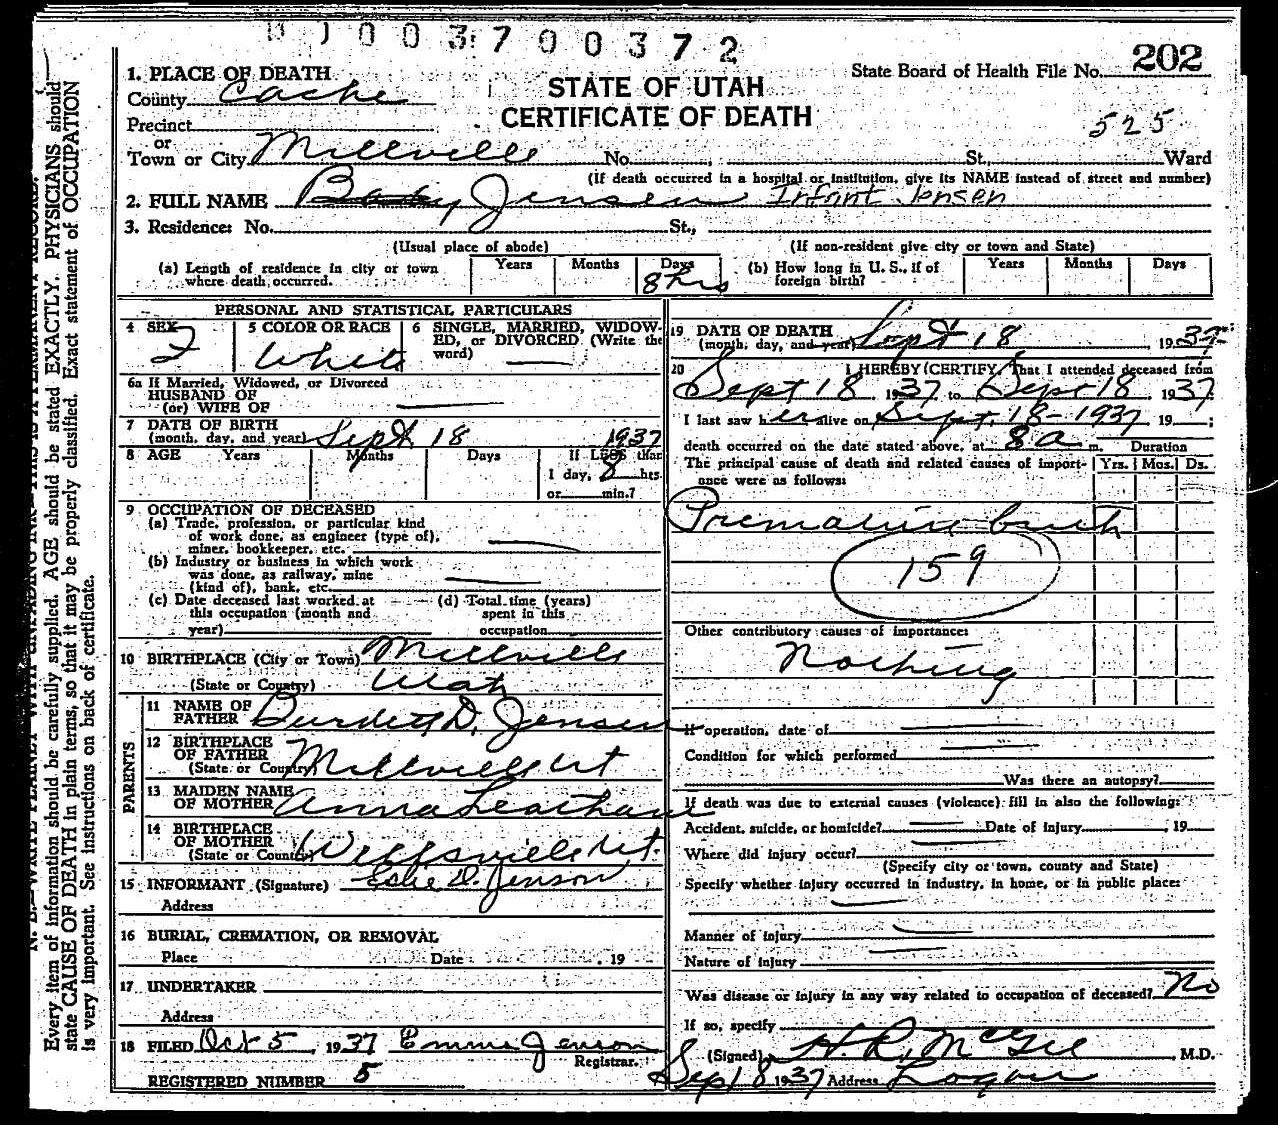 003700372
1. PLACE OF DEATH
County Cache
STATE OF UTAH
CERTIFICATE OF DEATH
State Board of Health File No. 202
525
Precinct
or
Town or City Millville No. St., Ward
(If death occurred in a hospital or institution, give its NAME instead of street and number)
2. FULL NAME Baby Jensen Infant Jensen
3. Residence: No. St.,
(Usual place of abode) (If non-resident give city or town and State)
(a) Length of residence in city or town where death occurred. Years Months Days 8 hrs
(b) How long in U. S., if of foreign birth? Years Months Days
PERSONAL AND STATISTICAL PARTICULARS
4 SEX F
5 COLOR OR RACE White
6 SINGLE, MARRIED, WIDOWED, or DIVORCED (Write the word)
6a If Married, Widowed, or Divorced
HUSBAND OF
(or) WIFE OF
7 DATE OF BIRTH
(month, day, and year) Sept 18 1937
8 AGE Years Months Days If LESS than
1 day, 8 hrs.
or min.?
9 OCCUPATION OF DECEASED
(a) Trade, profession, or particular kind
of work done, as engineer (type of),
miner, bookkeeper, etc.
(b) Industry or business in which work
was done, as railway, mine
(kind of), bank, etc.
(c) Date deceased last worked at
this occupation (month and
year)
(d) Total time (years)
spent in this
occupation
10 BIRTHPLACE (City or Town) Millville
(State or Country) Utah
PARENTS
11 NAME OF
FATHER Burdett D. Jensen
12 BIRTHPLACE
OF FATHER
(State or Country) Millville Ut
13 MAIDEN NAME
OF MOTHER Anna Leatham
14 BIRTHPLACE
OF MOTHER
(State or Country) Wellsville Ut.
15 INFORMANT (Signature) D. Jenson
Address
16 BURIAL, CREMATION, OR REMOVAL
Place Date 19
17 UNDERTAKER
Address
18 FILED Oct 5, 1937 Emma Jenson
Registrar.
REGISTERED NUMBER 5
19 DATE OF DEATH
(month, day, and year) Sept 18, 1937
20 I HEREBY CERTIFY, That I attended deceased from
Sept 18, 1937 to Sept 18, 1937.
I last saw her alive on Sept. 18-1937, 19 ;
death occurred on the date stated above, at 8 a m. Duration
The principal cause of death and related causes of importance were as follows: Yrs. Mos. Ds.
Premature birth
159
Other contributory causes of importance:
Nothing
If operation, date of
Condition for which performed
Was there an autopsy?
If death was due to external causes (violence) fill in also the following:
Accident, suicide, or homicide? Date of injury , 19
Where did injury occur?
(Specify city or town, county and State)
Specify whether injury occurred in industry, in home, or in public place:
Manner of injury
Nature of injury
Was disease or injury in any way related to occupation of deceased? No
If so, specify
(Signed) H. R. McGee, M.D.
Sept 18 1937 Address Logan
N. B.—WRITE PLAINLY WITH UNFADING INK—THIS IS A PERMANENT RECORD.
Every item of information should be carefully supplied. AGE should be stated EXACTLY. PHYSICIANS should
state CAUSE OF DEATH in plain terms, so that it may be properly classified. Exact statement of OCCUPATION
is very important. See instructions on back of certificate.